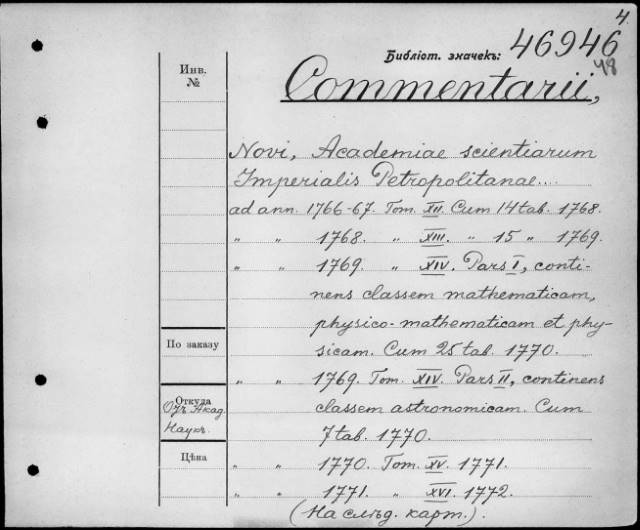 4.
Библіот. значекъ: 46946
48
Инв.
№
Commentarii,
Novi, Academiae scientiarum
Imperialis Petropolitanae....
ad ann. 1766-67. Tom. XII. Cum 14 tab. 1768.
" " 1768. " XIII. " 15 " 1769.
" " 1769. " XIV. Pars I, conti-
nens classem mathematicam,
physico-mathematicam et phy-
По заказу
sicam. Cum 25 tab. 1770.
" " 1769. Tom. XIV. Pars II, continens
Откуда
Отъ Акад.
classem astronomicam. Cum
Наукъ.
7 tab. 1770.
Цѣна
" " 1770. Tom. XV. 1771.
" " 1771. " XVI. 1772.
(На слѣд. карт.).